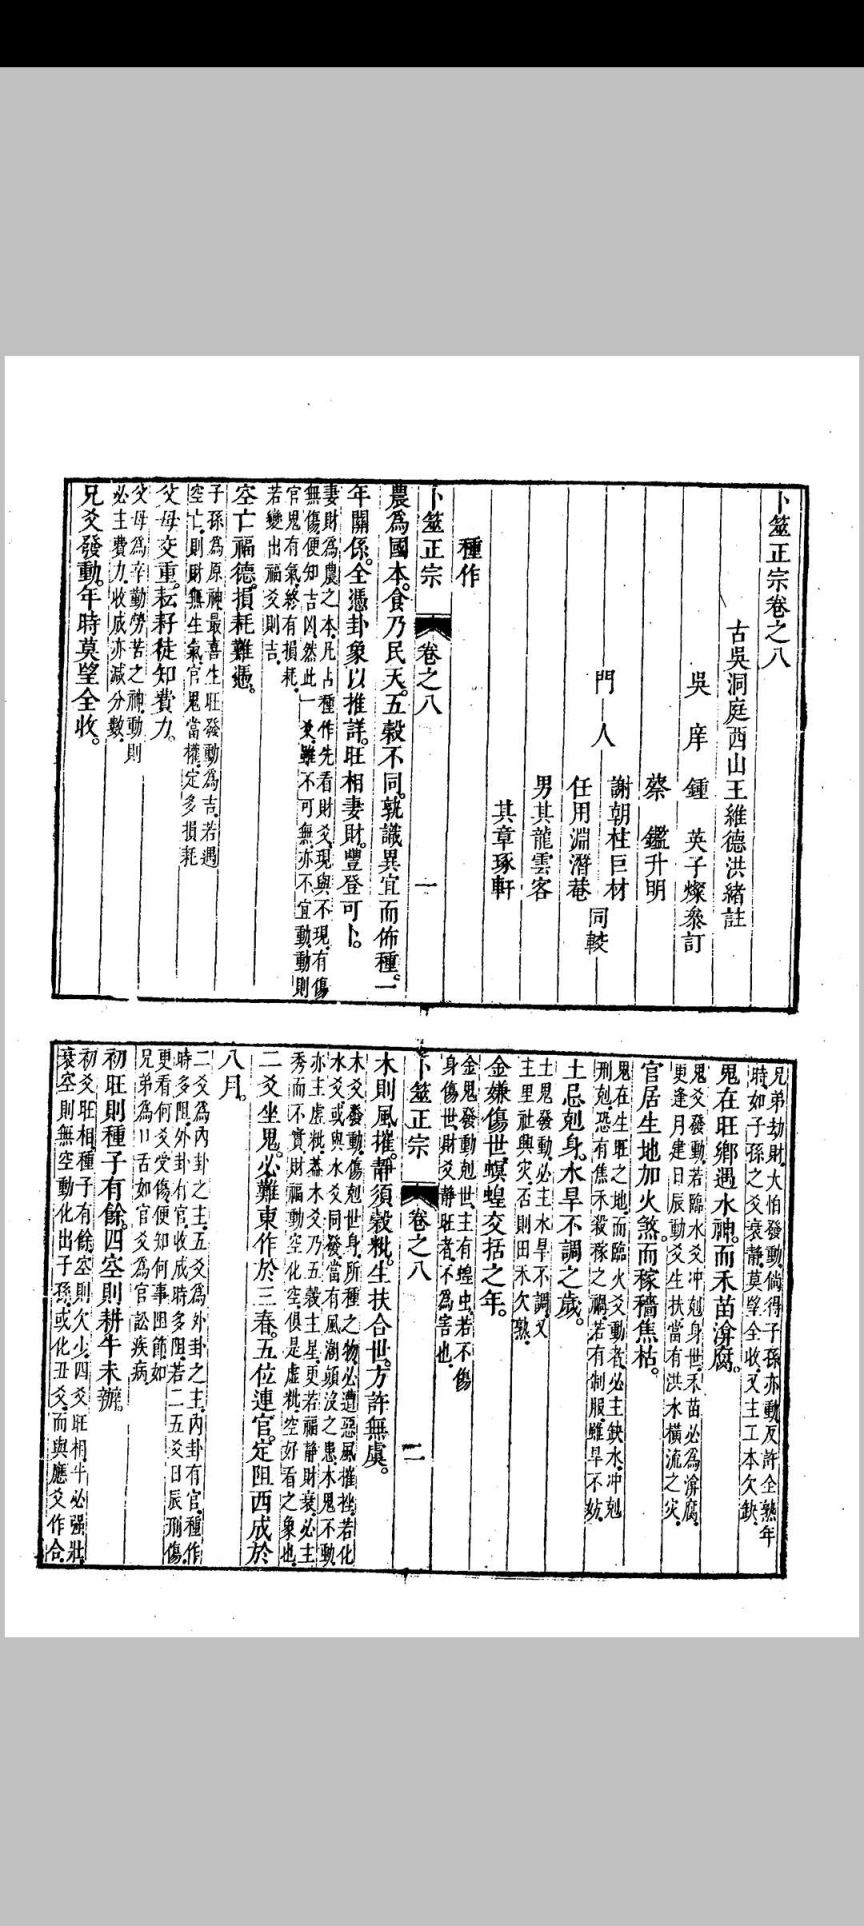 卜筮正宗卷之八
古吳洞庭西山王維德洪緒註
吳庠鍾英子燦叅訂
蔡鑑升明
謝朝柱巨材
門人
同較
任用淵潛菴
男其龍雲客
其章琢軒
種作
卜筮正宗 卷之八 一
農爲國本食乃民天。五穀不同。孰識異宜而佈種。一
年關係。全憑卦象以推詳。旺相妻財。豐登可卜。
妻財爲農之本。凡占種作先看財爻。現與不現有傷
無傷便知吉凶。然此一爻。雖不可無亦不宜動動則
官鬼有氣終有損耗
若變出福爻則吉.
空亡福德。損耗難憑。
子孫爲原神最喜生旺發動爲吉.若遇
空亡.則財無生氣.官鬼當權.定多損耗
父母交重。耘耔徒知費力。
父母爲辛勤勞苦之神.動則
必主費力.收成亦減分數.
兄爻發動。年時莫望全收。
兄弟劫財.大怕發動倘得子孫亦動反許全熟年
時.如子孫之爻衰靜.莫望全收.又主工本欠缺.
鬼在旺鄉遇水神。而禾苗渰腐。
鬼爻發動.若臨水爻冲尅身世.禾苗必爲渰腐.
更逢月建日辰動爻生扶當有洪水橫流之災.
官居生地加火煞。而稼穡焦枯。
鬼在生旺之地.而臨火爻動者.必主缺水.冲尅
刑尅.恐有焦禾殺稼之禍.若有制服.雖旱不妨.
土忌尅身。水旱不調之歲。
土鬼發動.必主水旱不調又
主里社興灾.否則田禾欠熟.
金嫌傷世。螟蝗交括之年。
金鬼發動尅世.主有蝗虫.若不傷
身傷世.財爻靜旺者.不爲害也.
卜筮正宗 卷之八 二
木則風摧。靜須穀粃。生扶合世。方許無虞。
木爻發動.傷尅世身.所種之物.必遭惡風摧挫.若化
水爻或與水爻同發.當有風潮頭沒之患.木鬼不動
亦主虛粃.葢木爻乃五穀主星.更若福靜財衰.必主
秀而不實.財福動空化空.俱是虛粃.空好看之象也.
二爻坐鬼。必難東作於三春。五位連官。定阻西成於
八月。
二爻爲內卦之主.五爻爲外卦之主.內卦有官.種作
時多阻.外卦有官.收成時多阻.若二五爻日辰刑傷.
更看何爻受傷.便知何事阻節.如
兄弟爲口舌.如官爻爲官訟疾病.
初旺則種子有餘。四空則耕牛未辦。
初爻旺相.種子有餘.空則欠少.四爻旺相.牛必强壯.
衰空則無.空動化出子孫.或化丑爻.而與應爻作合.